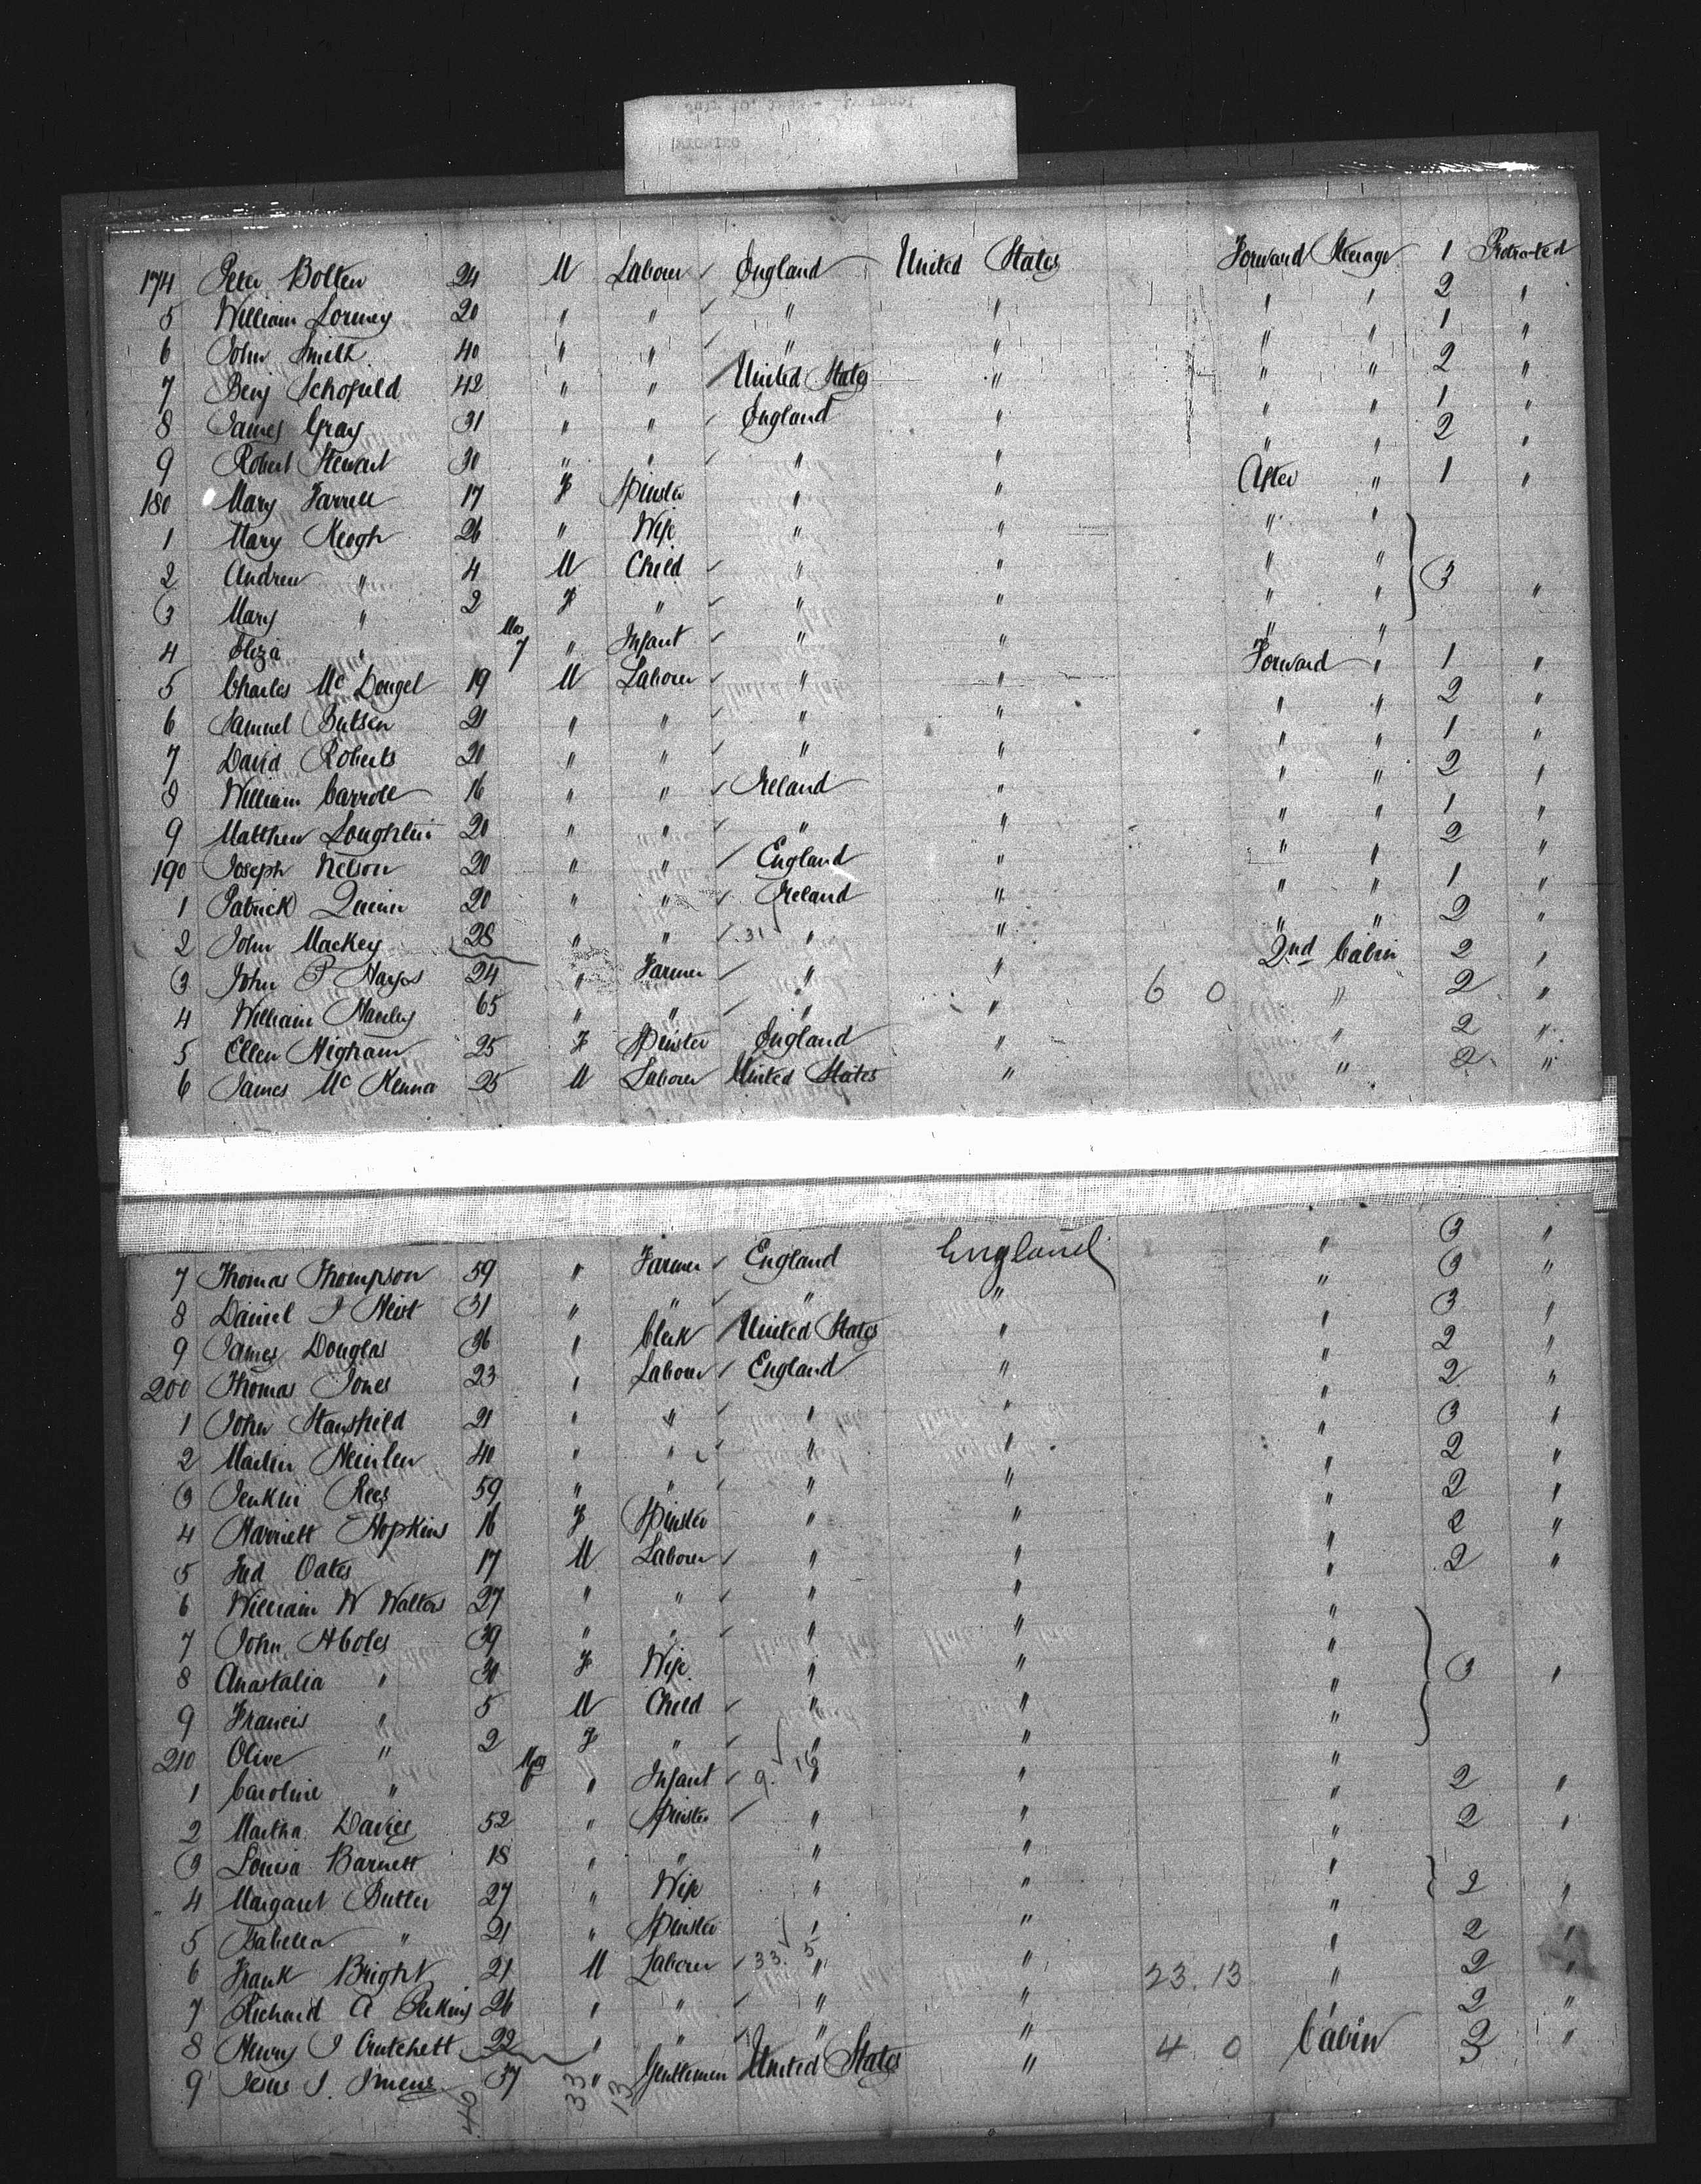 174 Peter Bolten 24 M Laborer England United States Forward Steerage 1 Protracted
5 William Lormey 20 " " " " " " 2 "
6 John Smith 40 " " " " " " 1 "
7 Benj Schofield 42 " " United States " " " 2 "
8 James Gray 31 " " England " " " 1 "
9 Robert Stewart 30 " " " " " " 2 "
180 Mary Farrell 17 F Spinster " " After " 1 "
1 Mary Keogh 26 " Wife " " " "
2 Andrew " 4 M Child " " " " 3 "
3 Mary " 2 F " " " " "
4 Eliza " Mos 7 " Infant " " " "
5 Charles McDougel 19 M Laborer " " Forward " 1 "
6 Samuel Butson 21 " " " " " " 2 "
7 David Roberts 20 " " " " " " 1 "
8 William Carroll 16 " " Ireland " " " 2 "
9 Matthew Loughlin 20 " " " " " " 1 "
190 Joseph Nelson 20 " " England " " " 2 "
1 Patrick Quinn 20 " " Ireland " " " 1 "
2 John Mackey 28 " " 31 " " " " 2 "
3 John P Hayes 24 " Farmer " " 2nd Cabin 2 "
4 William Hanley 65 " " " " 6 0 " 2 "
5 Ellen Higham 25 F Spinster England " " 2 "
6 James McKenna 25 M Laborer United States " " 2 "
7 Thomas Thompson 59 " Farmer England England " 3 "
8 Daniel J 31 " " " " " 3 "
9 James Douglas 36 " Clerk United States " " 3 "
200 Thomas Jones 23 " Laborer England " " 2 "
1 John Stansfield 21 " " " " " 2 "
2 Martin 40 " " " " " 3 "
3 Jenkin Rees 59 " " " " " 2 "
4 Harriett Hopkins 16 F Spinster " " " 2 "
5 Fred Oates 17 M Laborer " " " 2 "
6 William W Walters 27 " " " " " 2 "
7 John Aboles 39 " " " " "
8 Anastatia " 30 F Wife " " " 3 "
9 Francis " 5 M Child " " "
210 Olive " 2 F " " " "
1 Caroline " Mos " Infant 9. 16 " " "
2 Martha Davies 52 " Spinster " " " 2 "
3 Louisa Barnett 18 " " " " " 2 "
4 Margaret Butler 27 " Wife " " " 2 "
5 Isabella " 21 " Spinster " " "
6 Frank Bright 21 M Laborer 33. 5 " " 23. 13 " 2 "
7 Richard A Perkins 26 " " " " " 2 "
8 Henry J Crutchett 22 " " " " " 2 "
9 Jesus J. 37 " Gentleman United States " 4 0 Cabin 3 "
40 33 13